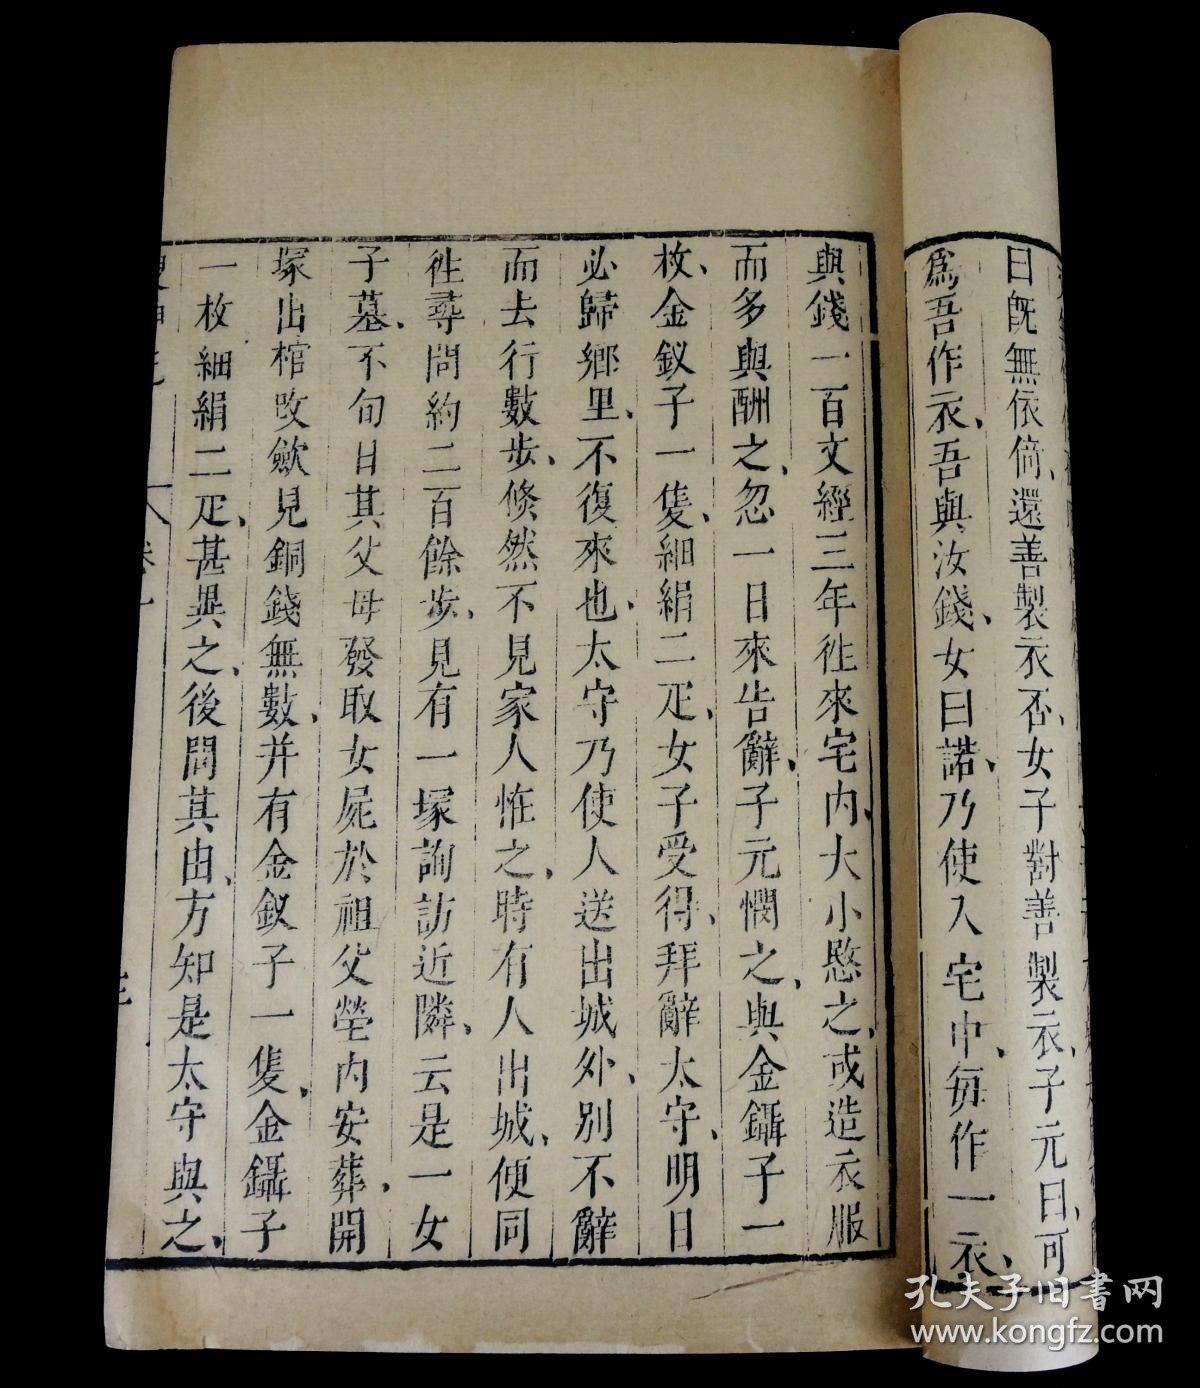 曰旣無依倚、還善製衣否、女子對善製衣、子元曰、可
爲吾作衣、吾與汝錢、女曰諾、乃使入宅中、每作一衣、
與錢一百文經三年徃來宅内、大小愍之、或造衣服
而多與酬之、忽一日來告辭、子元憫之、與金鑷子一
枚、金釵子一隻、細絹二疋、女子受得、拜辭太守、明日
必歸鄕里、不復來也、太守乃使人送出城外、别不辭
而去行數步、倏然不見家人恠之、時有人出城、便同
徃尋問約二百餘步、見有一塚詢訪近隣、云是一女
子墓、不旬日其父母發取女屍於祖父塋内安葬、開
塚出棺改斂見銅錢無數、并有金釵子一隻、金鑷子
一枚細絹二疋、甚異之、後問其由、方知是太守與之、
卷一
孔夫子旧书网
www.kongfz.com